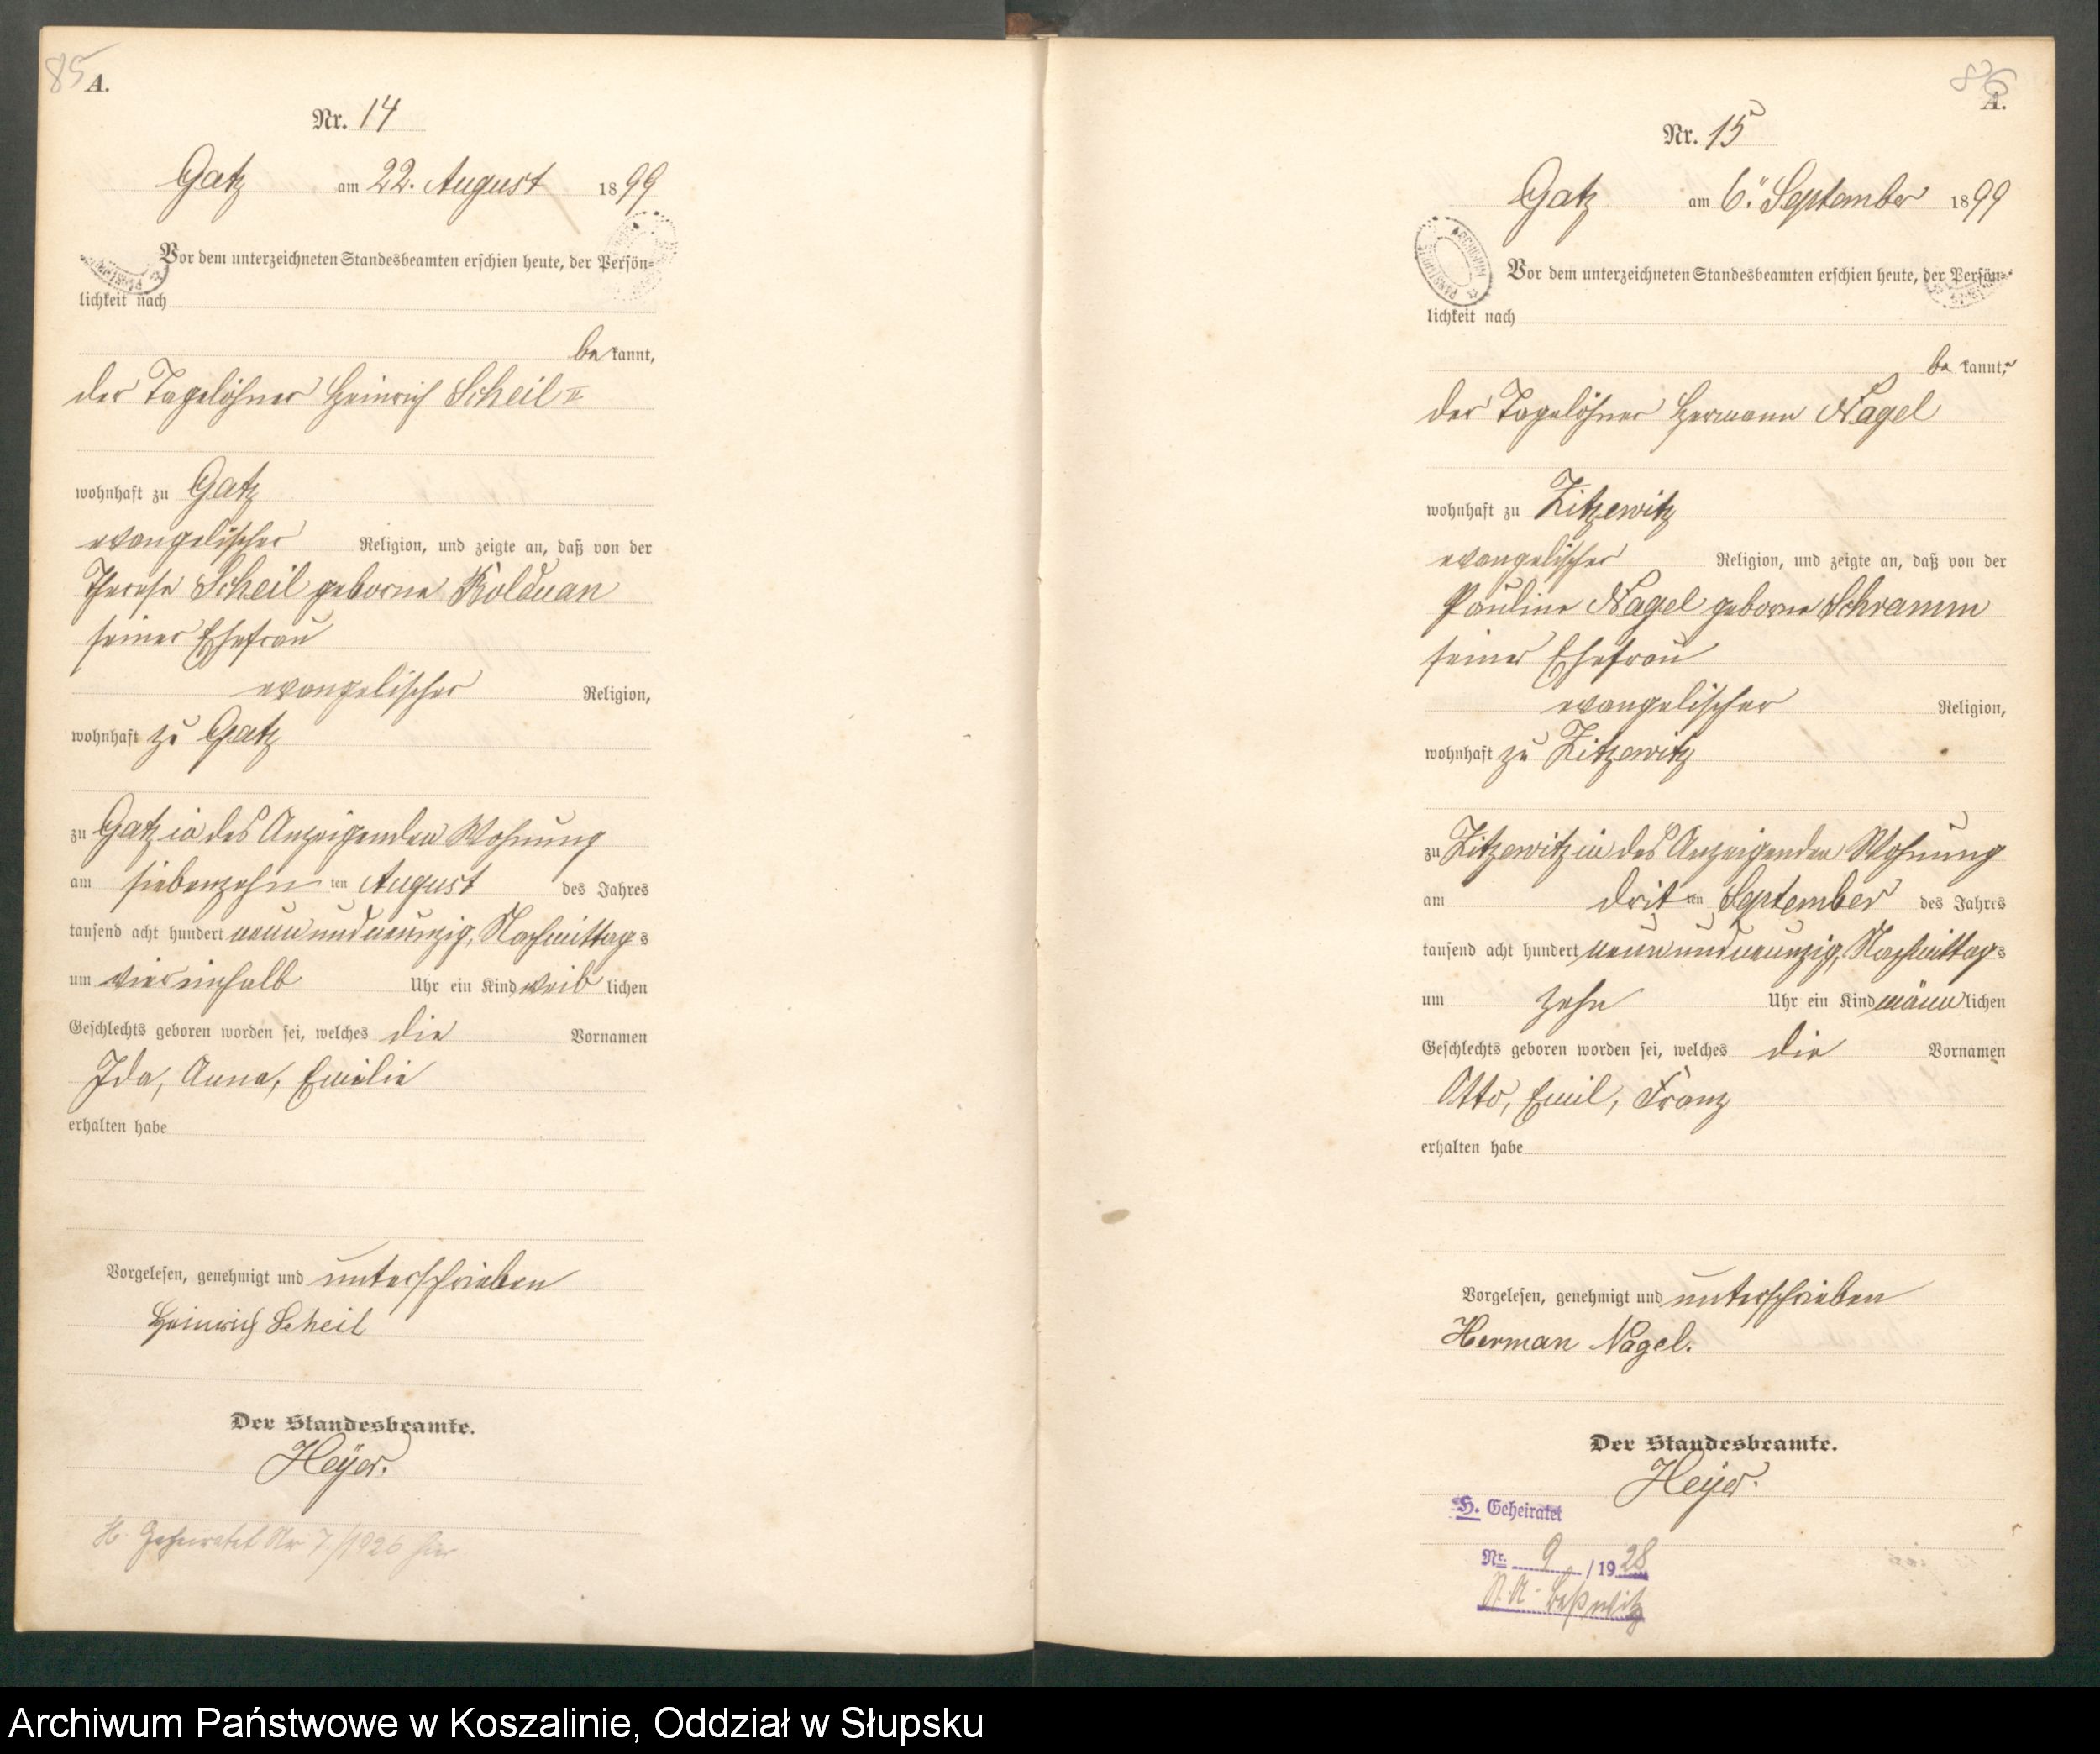 85
A.
Nr. 14
Gatz am 22. August 1899
Vor dem unterzeichneten Standesbeamten erschien heute, der Persön-
lichkeit nach
be kannt,
der Tagelöhner Heinrich Scheil II
wohnhaft zu Gatz
evangelischer Religion, und zeigte an, daß von der
Therese Scheil geborne Kolduan
seiner Ehefrau
evangelischer Religion,
wohnhaft zu Gatz
zu Gatz in des Anzeigenden Wohnung
am siebenzehn ten August des Jahres
tausend acht hundert neunundneunzig, Nachmittags
um viereinhalb Uhr ein Kind weib lichen
Geschlechts geboren worden sei, welches die Vornamen
Ida, Anna, Emilie
erhalten habe
Vorgelesen, genehmigt und unterschrieben
Heinrich Scheil
Der Standesbeamte.
Heyer.
H. Geheiratet Nr 7./1926 hier
86
A.
Nr. 15
Gatz am 6. September 1899
ARCHIWUM
Vor dem unterzeichneten Standesbeamten erschien heute, der Persön-
lichkeit nach
be kannt,
der Tagelöhner Hermann Nagel
wohnhaft zu Zitzewitz
evangelischer Religion, und zeigte an, daß von der
Pauline Nagel geborne Schramm
seiner Ehefrau
evangelischer Religion,
wohnhaft zu Zitzewitz
zu Zitzewitz in des Anzeigenden Wohnung
am drit ten September des Jahres
tausend acht hundert neunundneunzig, Nachmittags
um zehn Uhr ein Kind männ lichen
Geschlechts geboren worden sei, welches die Vornamen
Otto, Emil, Franz
erhalten habe
Vorgelesen, genehmigt und unterschrieben
Herman Nagel.
Der Standesbeamte.
Heyer.
H. Geheiratet
Nr. 9 / 1928
Archiwum Państwowe w Koszalinie, Oddział w Słupsku